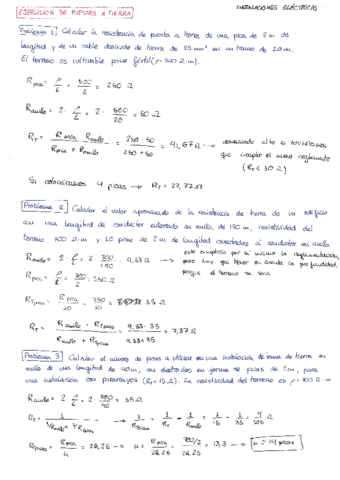 INSTALACIONES ELÉCTRICAS
EJERCICIOS DE PUESTAS A TIERRA
Problema 1) Calcular la resistencia de puesta a tierra de una pica de 2 m de
longitud y de un cable desnudo de tierra de 25 mm² en un tramo de 20 m.
El terreno es cultivable poco fértil (ρ = 500 Ω·m).
Rpica = ρ/L = 500/2 = 250 Ω
Ranillo = 2 · ρ/L = 2 · 500/20 = 50 Ω
RT = Rpica · Ranillo / Rpica + Ranillo = 250 · 50 / 250 + 50 = 41,67 Ω → demasiado alto si tuviésemos
que cumplir el nuevo reglamento
(RT < 30 Ω)
Si colocáramos 4 picas → RT = 27,77 Ω
Problema 2) Calcular el valor aproximado de la resistencia de tierra de un edificio
con una longitud de conductor enterrado en anillo, de 150 m, resistividad del
terreno 700 Ω·m y 10 picas de 2 m de longitud conectadas al conductor en anillo.
Ranillo = 2 · ρ/L = 2 · 700/150 = 9,33 Ω → esta cumpliría por si misma la reglamentación,
pero hay que tener en cuenta la profundidad
porque el terreno se seca
Rpica = ρ/L = 700/2 = 350 Ω
RTpicas = Rpica/10 = 350/10 = 35 Ω
RT = Ranillo · RTpicas / Ranillo + RTpicas = 9,33 · 35 / 9,33 + 35 = 7,37 Ω
Problema 3) Calcular el número de picas a utilizar en una instalación de toma de tierra en
anillo de una longitud de 40 m, con electrodos en forma de picas de 2 m, para
una instalación con pararrayos (RT = 15 Ω). La resistividad del terreno es ρ = 700 Ω·m
Ranillo = 2 · ρ/L = 2 · 700/40 = 35 Ω
RT = 1 / 1/Ranillo + 1/RTpicas → 1/RTpicas = 1/RT - 1/Ranillo = 1/15 - 1/35 = 4/105 Ω
RTpicas = Rpica/n = 26,25 → n = Rpica/26,25 = 700/2 / 26,25 = 13,3 → n = 14 picas